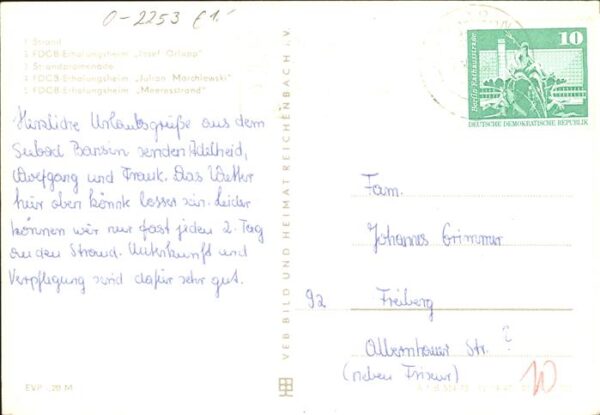 0-2253 £1.
1 Strand
2 FDGB-Erholungsheim „Josef Orlopp"
3 Strandpromenade
4 FDGB-Erholungsheim „Julian Marchlewski"
5 FDGB-Erholungsheim „Meeresstrand"
Herzliche Urlaubsgrüße aus dem
Seebad Bansin senden Adelheid,
Wolfgang und Frank. Das Wetter
hier oben könnte besser sein. Leider
können wir nur fast jeden 2. Tag
an den Strand. Unterkunft und
Verpflegung sind dafür sehr gut.
EVP -,20 M
VEB BILD UND HEIMAT REICHENBACH i. V.
10
Berlin, Rathausstraße
DEUTSCHE DEMOKRATISCHE REPUBLIK
Fam.
Johannes Grimmer
92 Freiberg
Olbernhauer Str. ?
(neben Friseur)